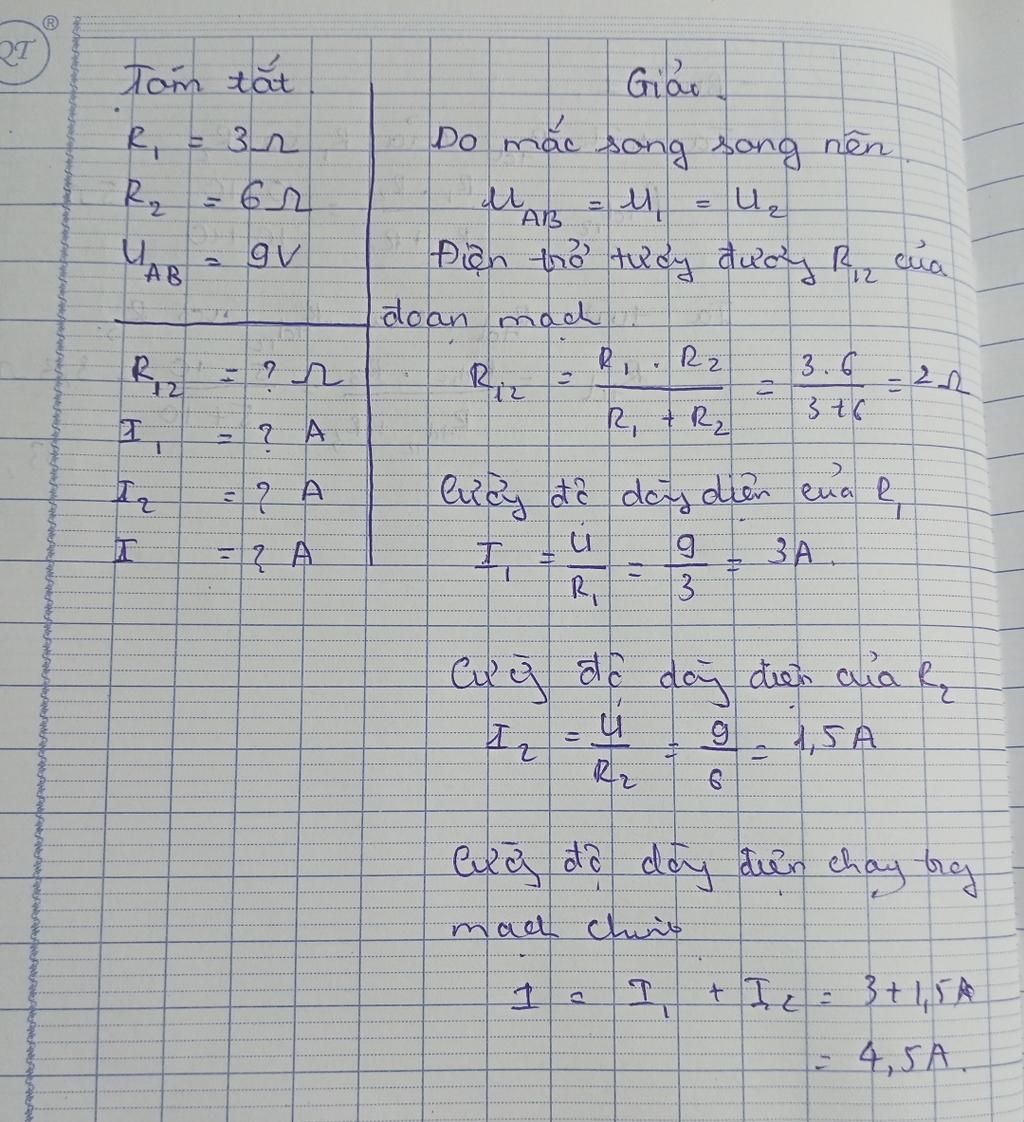 QT ®
Tóm tắt
R₁ = 3Ω
R₂ = 6Ω
U_AB = 9V
R₁₂ = ? Ω
I₁ = ? A
I₂ = ? A
I = ? A
Giải
Do mắc song song nên
U_AB = U₁ = U₂
Điện trở tương đương R₁₂ của
đoạn mạch
R₁₂ = (R₁ . R₂)/(R₁ + R₂) = (3.6)/(3+6) = 2Ω
Cường độ dòng điện của R₁
I₁ = U/R₁ = 9/3 = 3A.
Cường độ dòng điện của R₂
I₂ = U/R₂ = 9/6 = 1,5A
Cường độ dòng điện chạy trg
mạch chính
I = I₁ + I₂ = 3+1,5A
= 4,5A.